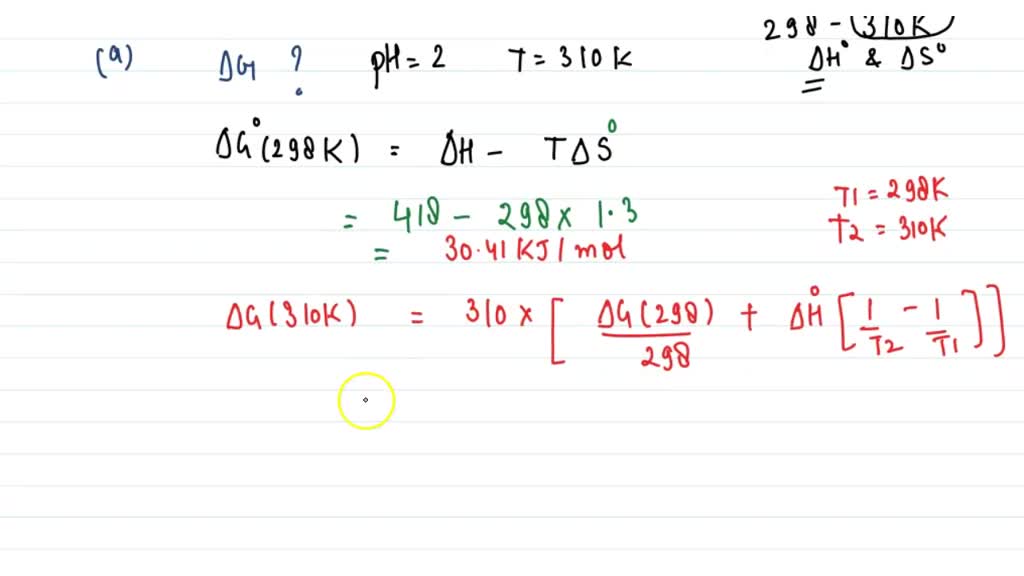 298 - (310K)
(a) ΔG ? pH = 2 T = 310 K ΔH° & ΔS°
ΔG°(298K) = ΔH - TΔS°
= 418 - 298 × 1.3
= 30.41 KJ / mol
T1 = 298K
T2 = 310K
ΔG(310K) = 310 × [ ΔG(298) / 298 + ΔH° [ 1/T2 - 1/T1 ] ]